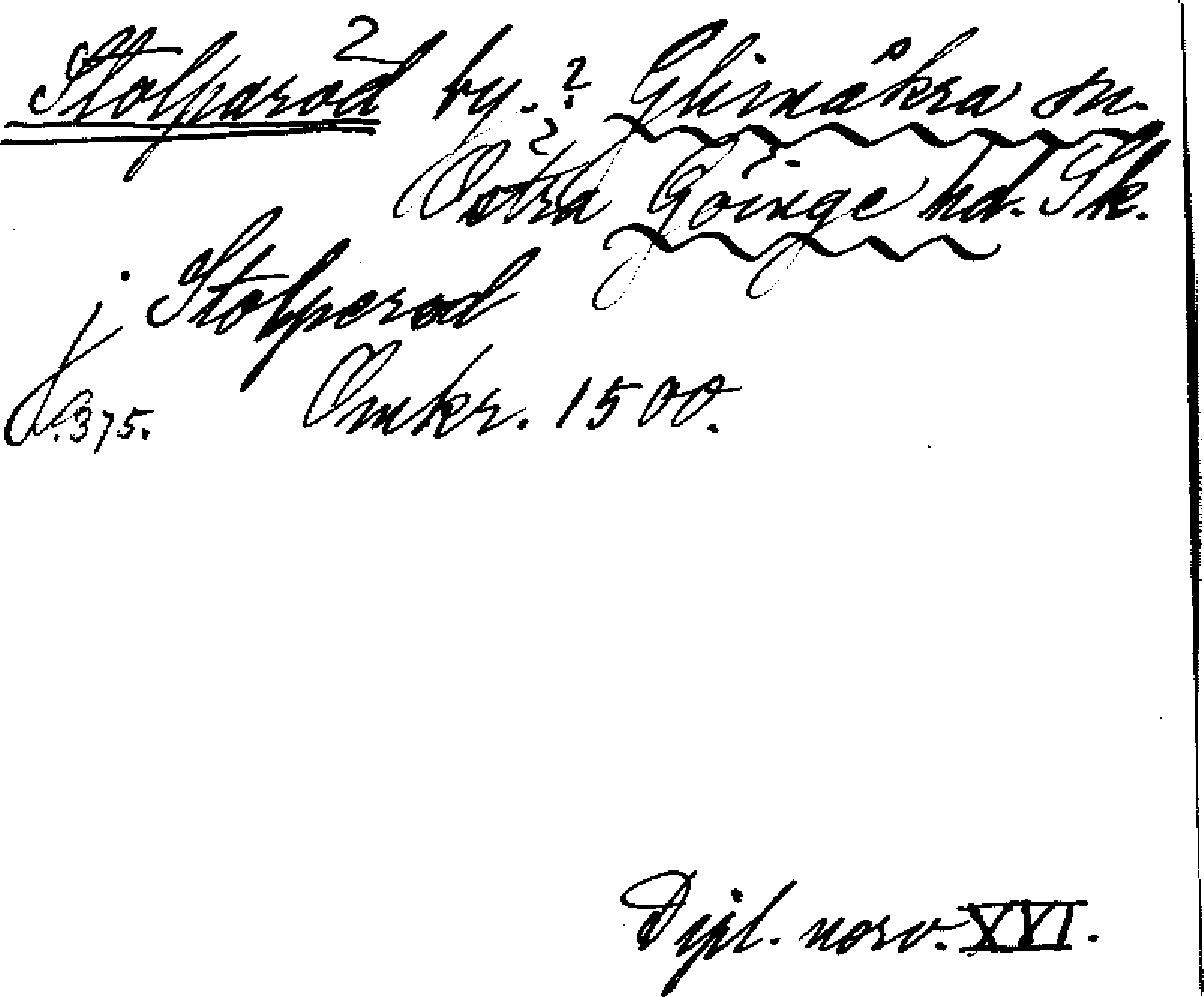 Stolparöd by.? Glimåkra sn.
Östra Göinge hd. Sk.
j Stolperød
Omkr. 1500.
s. 375.
Dipl. norv. XVI.